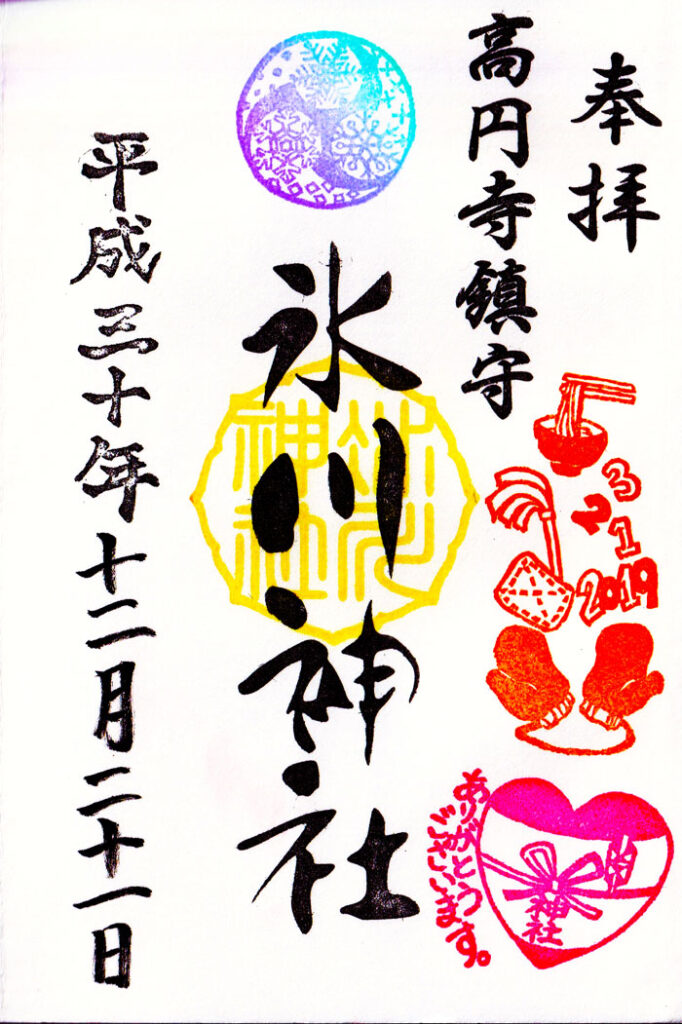 奉拝
高円寺鎮守
氷川神社
氷川
神社
3
2
1
2019
ありがとう
ございます。
神社
平成三十年十二月二十一日